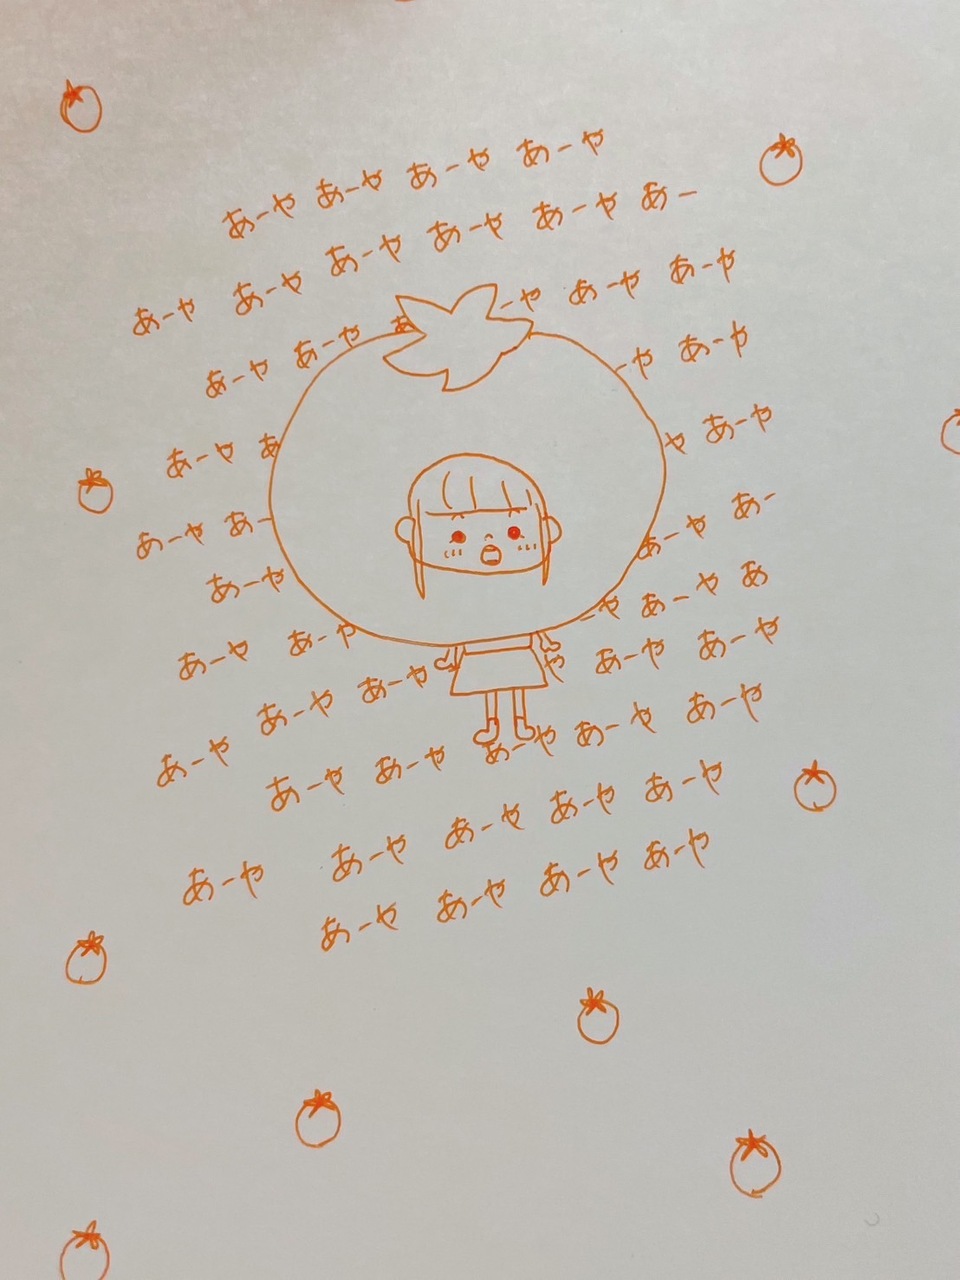 あーや あーや あーや あーや
あーや あーや あーや あーや あーや あー
あーや あーや あ ーや あーや あーや
あーや あ ーや あーや
あーや あー や あーや
あーや あーや あー
あーや あーや ーや あーや あ
あーや あーや あーや や あーや あーや
あーや あーや あーや あーや あーや あーや
あーや あーや あーや あーや あーや
あーや あーや あーや あーや